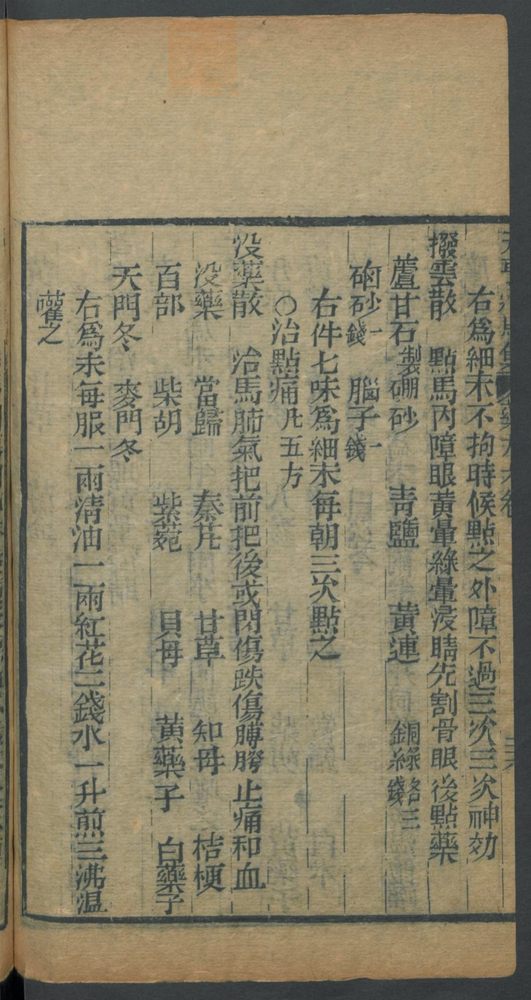 右爲細末不拘時候點之外障不過三次三次神効
撥雲散　點馬內障眼黃暈綠暈浸睛先割骨眼後點藥
蘆甘石製　硼砂　靑鹽　黃連　銅綠各三錢
硇砂一錢　腦子一錢
右件七味爲細末每朝三次點之
○治㸃痛凡五方
没藥散　治馬肺氣把前把後或閃傷跌傷膊胯止痛和血
没藥　當歸　秦芃　甘草　知母　桔梗
百部　柴胡　紫菀　貝母　黃藥子　白藥子
天門冬　麥門冬
右爲末每服一兩清油一兩紅花三錢水一升煎三沸温
灌之